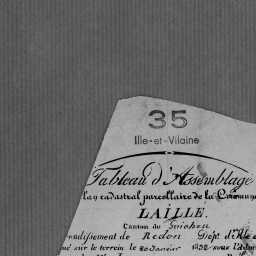 35
Ille-et-Vilaine
Tableau d'Assemblage
plan cadastral parcellaire de la Commune
LAILLÉ.
Canton de Guichen
Arrondissement de Redon Dépt. d'Ille
sur le terrein le 20 Janvier 1832 sous